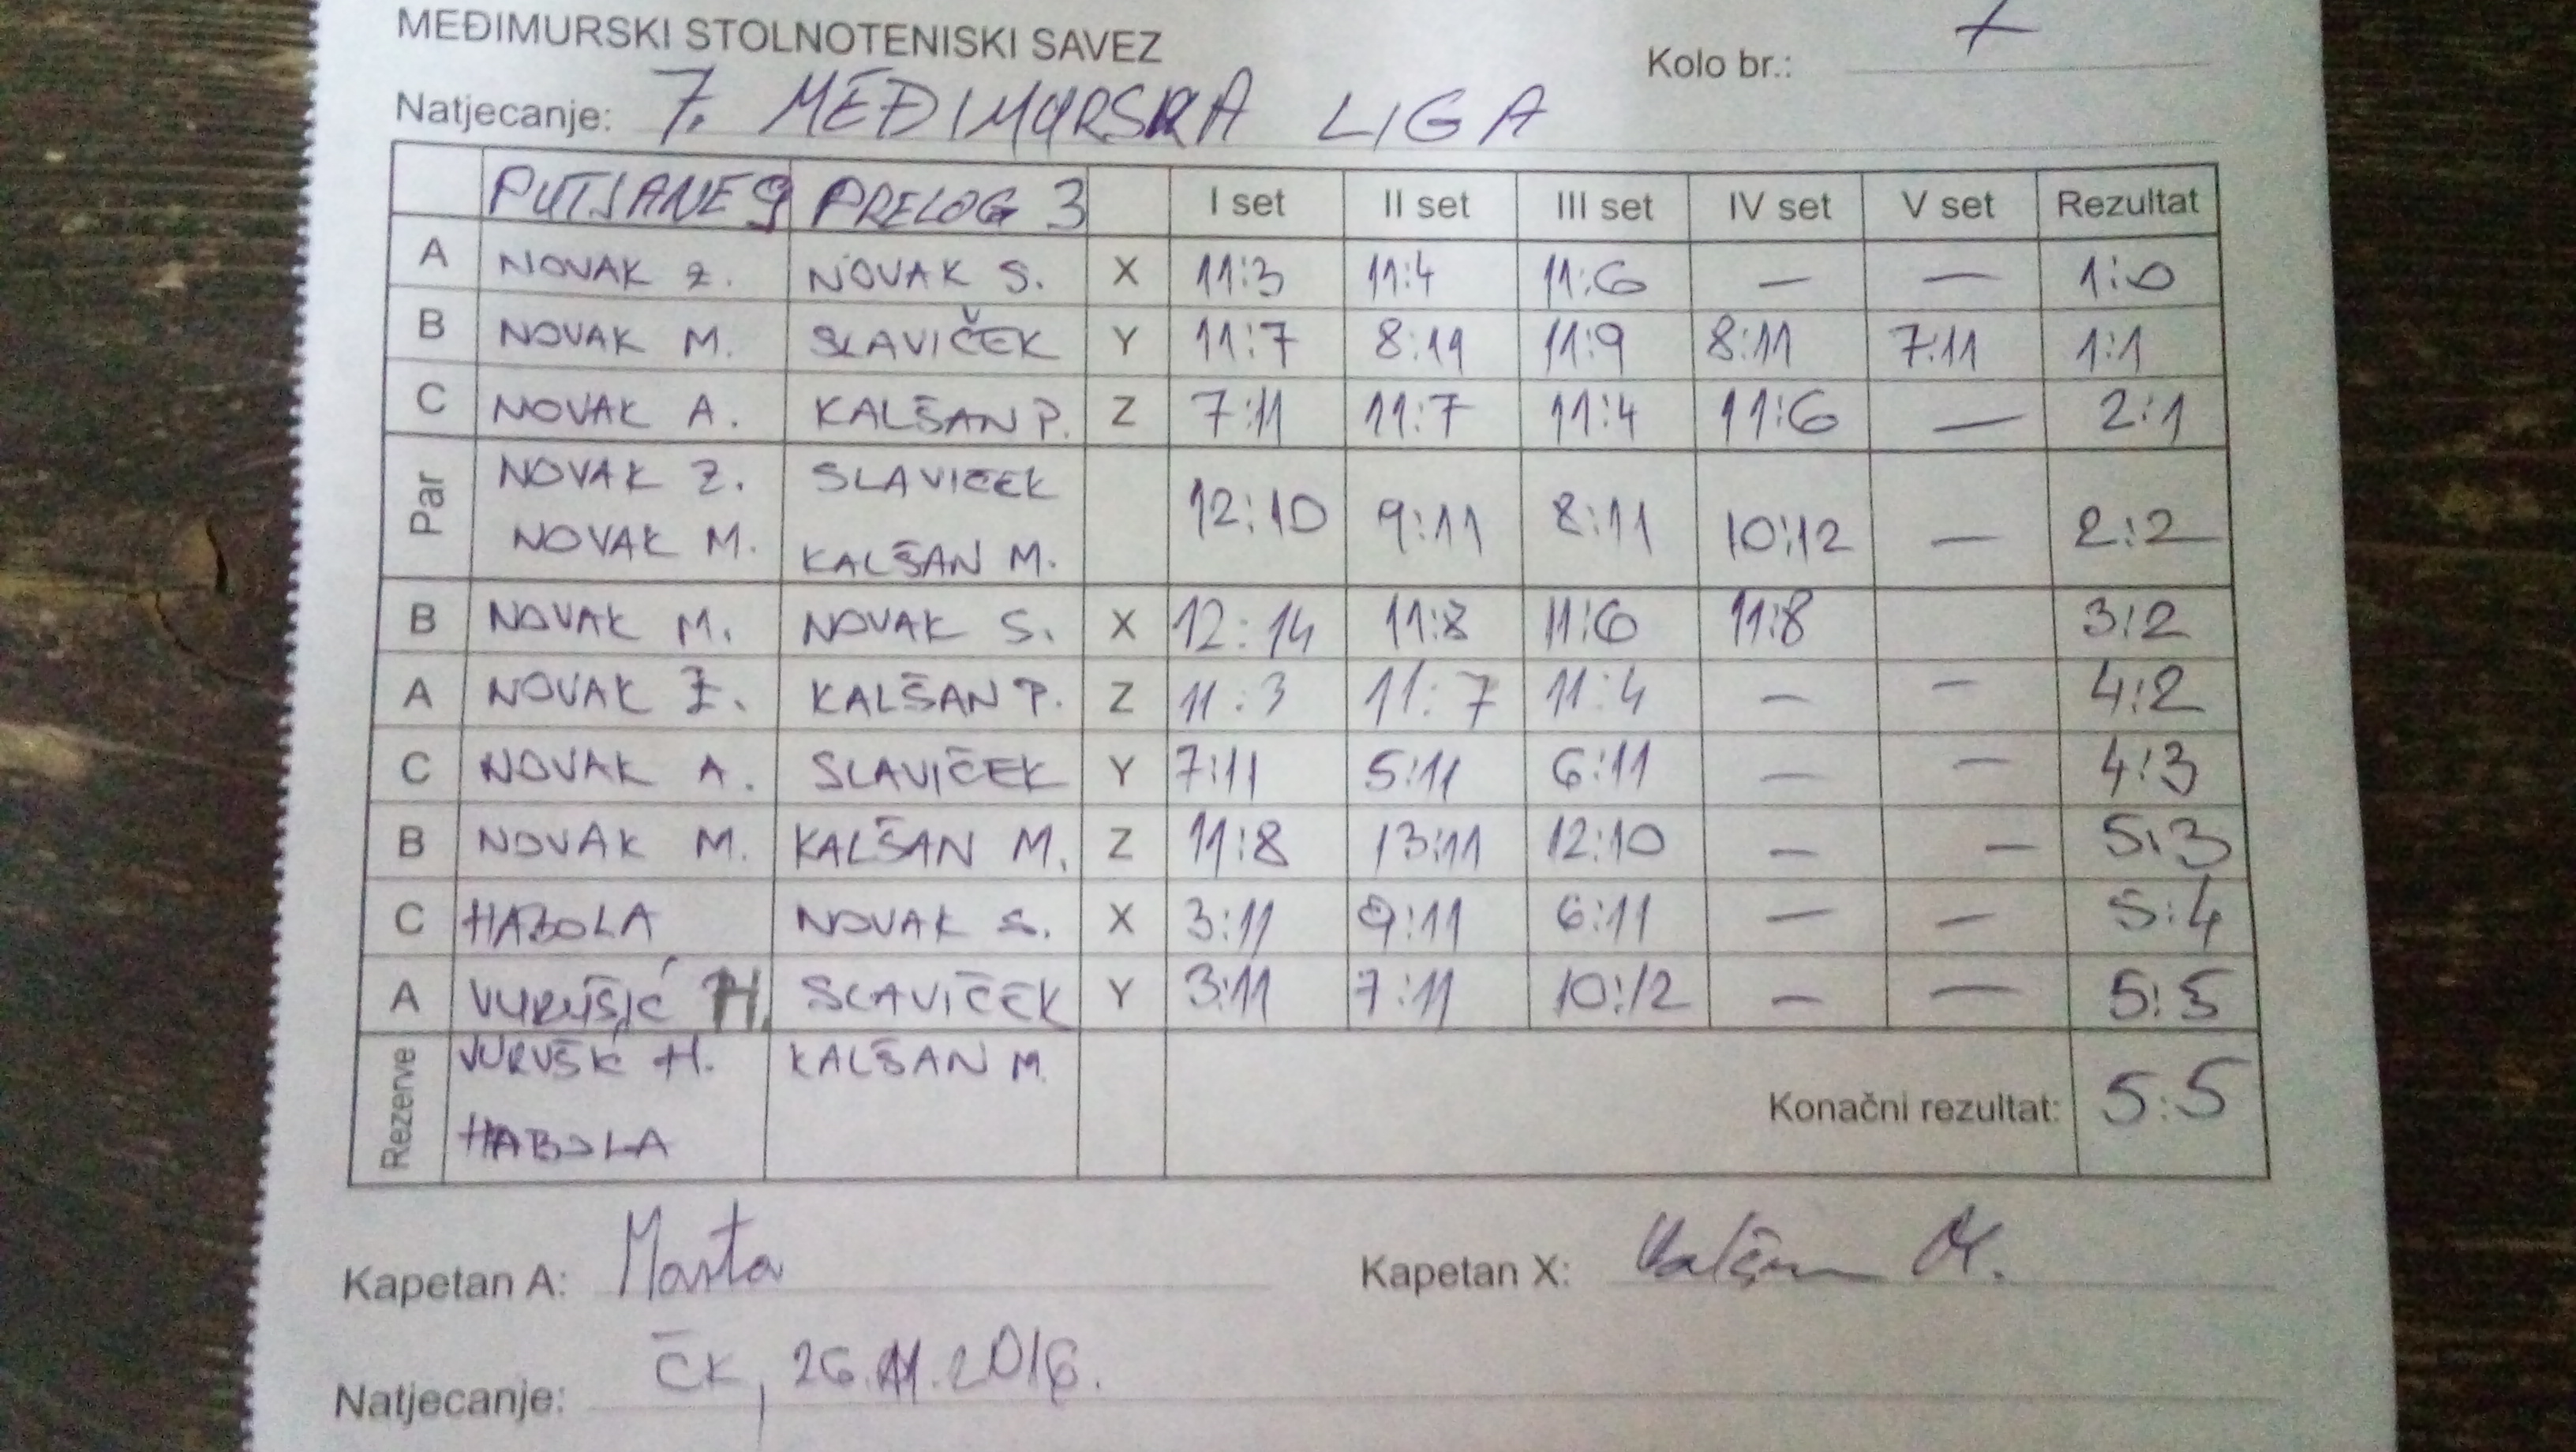 MEĐIMURSKI STOLNOTENISKI SAVEZ
Kolo br.: 7
Natjecanje: 7. MEĐIMURSKA LIGA
PUTJANE 9 PRELOG 3 I set II set III set IV set V set Rezultat
A NOVAK Ž. NOVAK S. X 11:3 11:4 11:6 — — 1:0
B NOVAK M. SLAVIČEK Y 11:7 8:11 11:9 8:11 7:11 1:1
C NOVAK A. KALŠAN P. Z 7:11 11:7 11:4 11:6 — 2:1
Par NOVAK Z. SLAVIČEK 12:10 9:11 8:11 10:12 — 2:2
NOVAK M. KALŠAN M.
B NOVAK M. NOVAK S. X 12:14 11:8 11:6 11:8 3:2
A NOVAK Ž. KALŠAN P. Z 11:3 11:7 11:4 — — 4:2
C NOVAK A. SLAVIČEK Y 7:11 5:11 6:11 — — 4:3
B NOVAK M. KALŠAN M. Z 11:8 13:11 12:10 — — 5:3
C HABOLA NOVAK S. X 3:11 9:11 6:11 — — 5:4
A VURUŠIĆ H. SLAVIČEK Y 3:11 7:11 10:12 — — 5:5
Rezerve VURUŠIĆ H. KALŠAN M.
HABOLA
Konačni rezultat: 5:5
Kapetan A: Marta Kapetan X: Kalšan M.
Natjecanje: ČK, 26.11.2016.